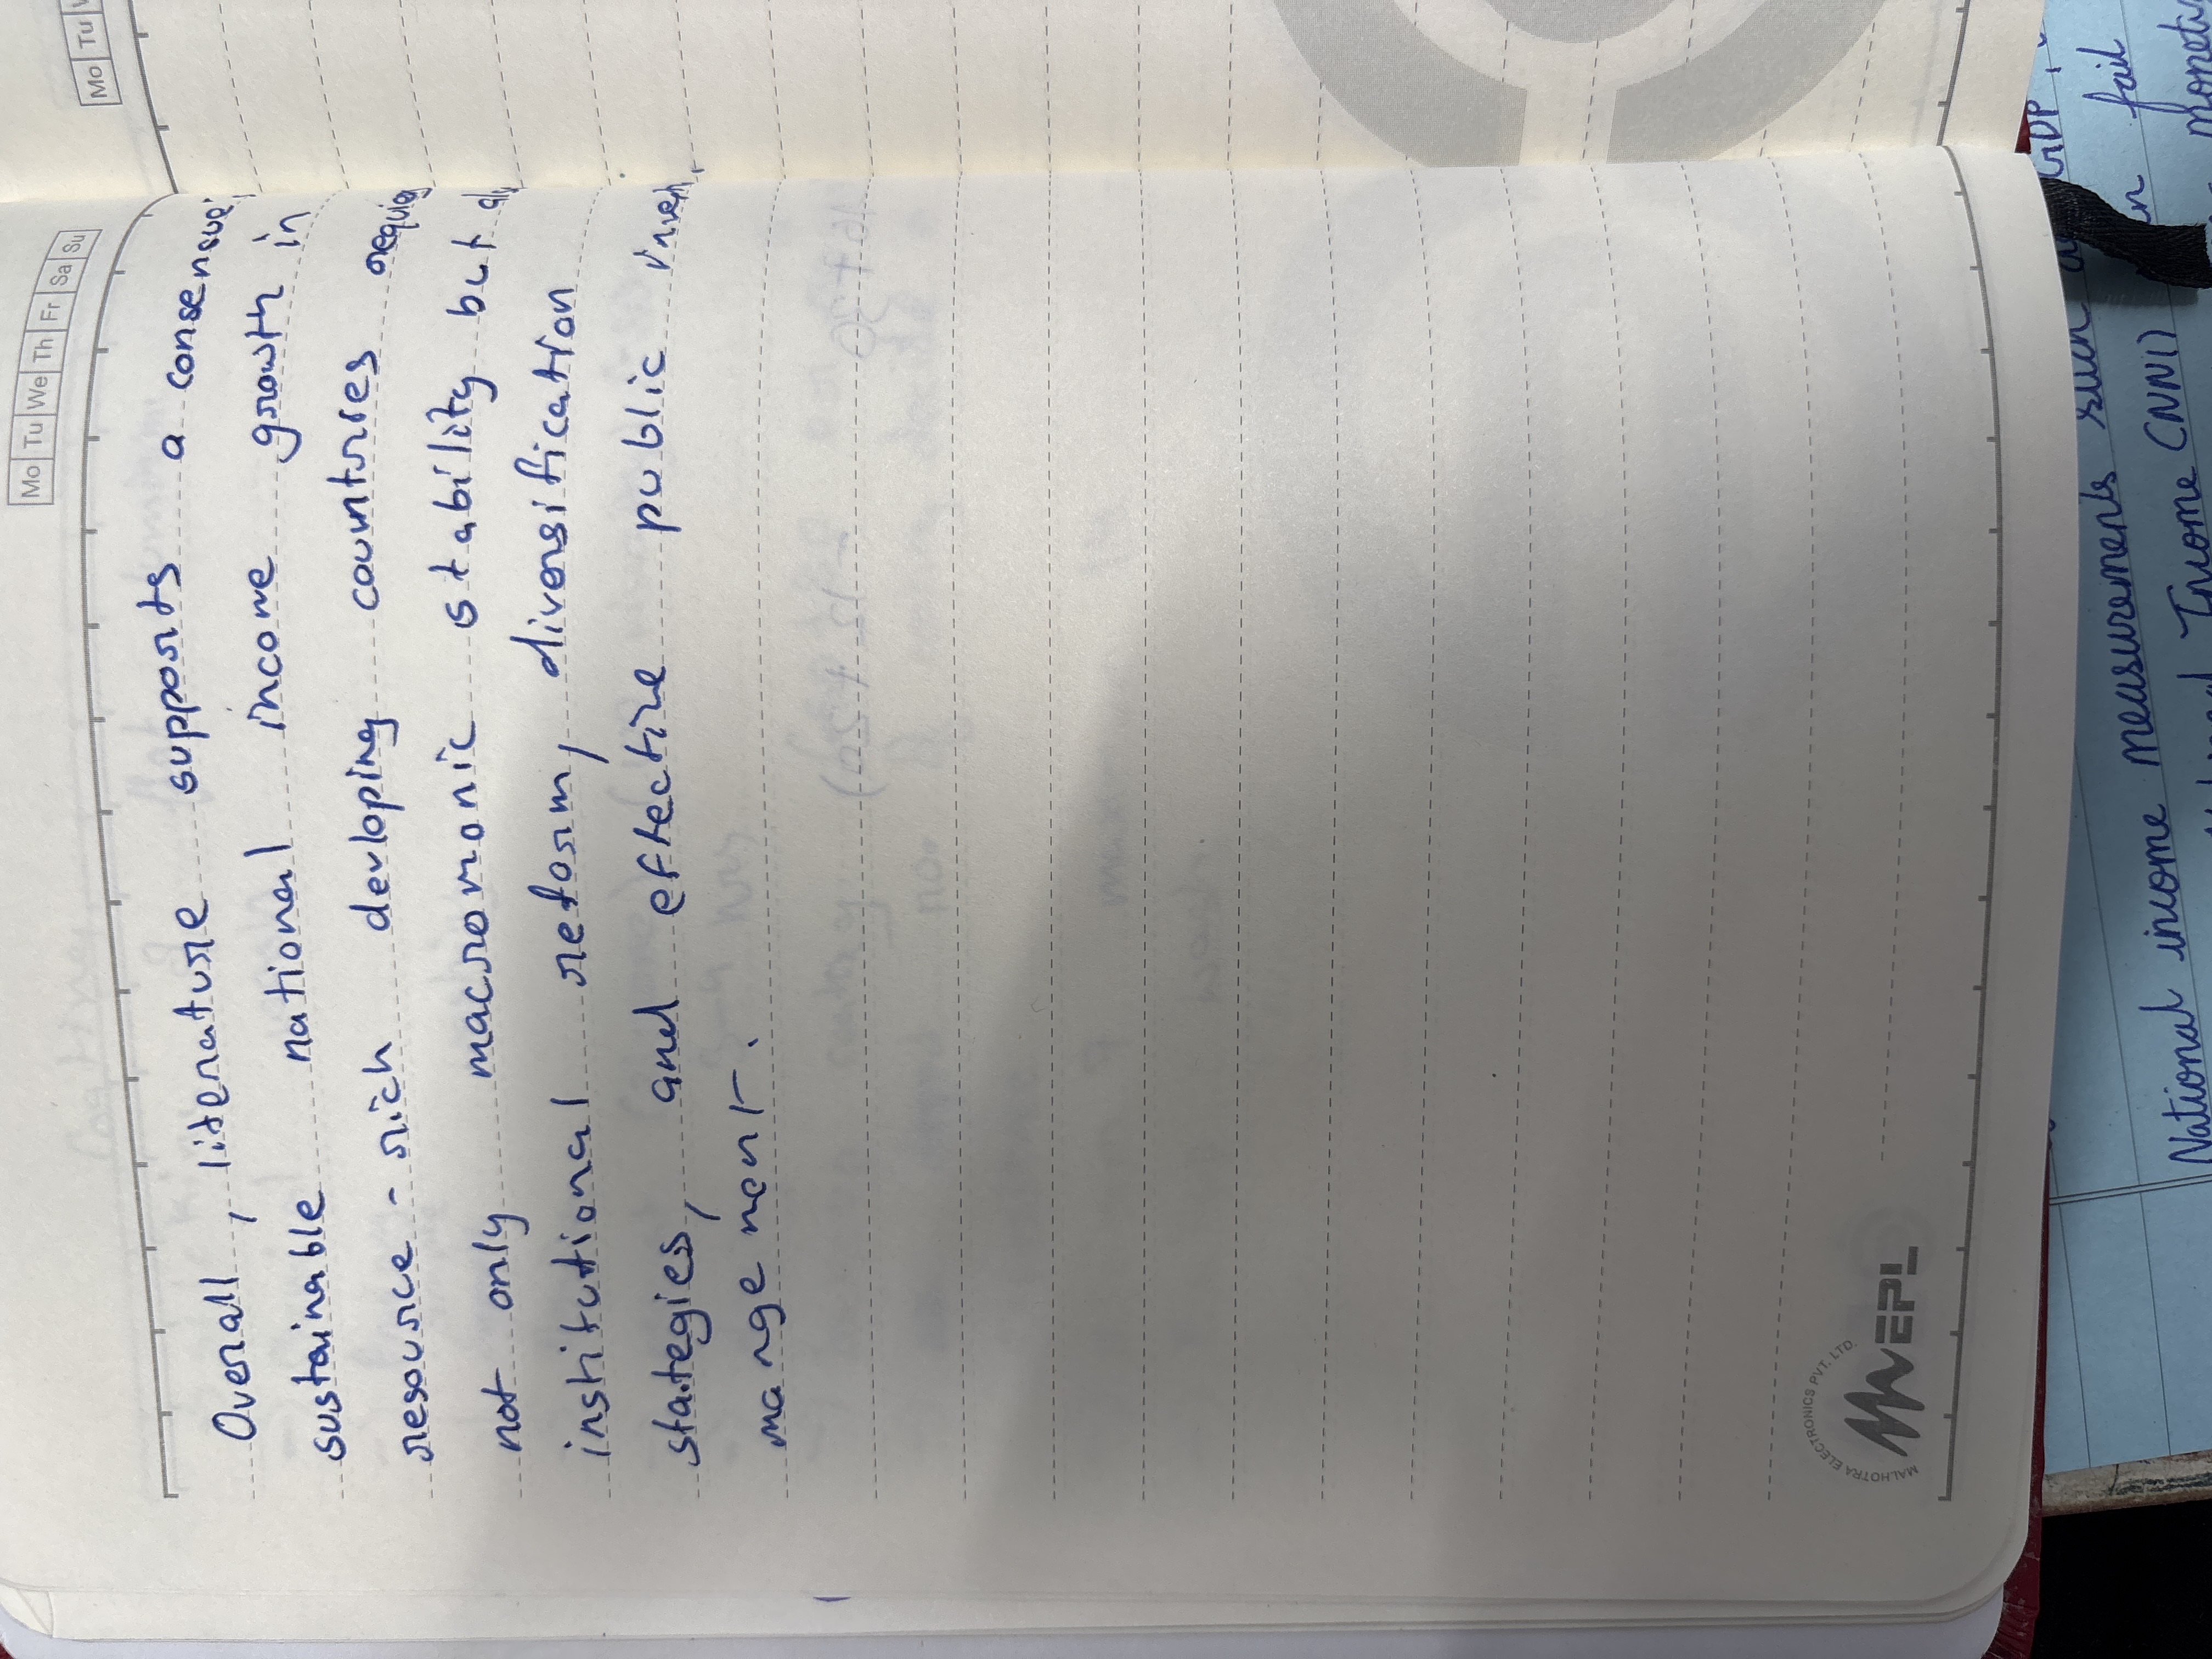 Mo Tu We Th Fr Sa Su
Overall, literature supports a consensus
sustainable national income growth in
resource-rich devloping countries
not only macroeconomic stability but
institutional reform, diversification
stategies, and effective public
management.
MALHOTRA ELECTRONICS PVT. LTD.
MEPL
Mo Tu
GDP
such
fail
National income measurements
Income (NNI)